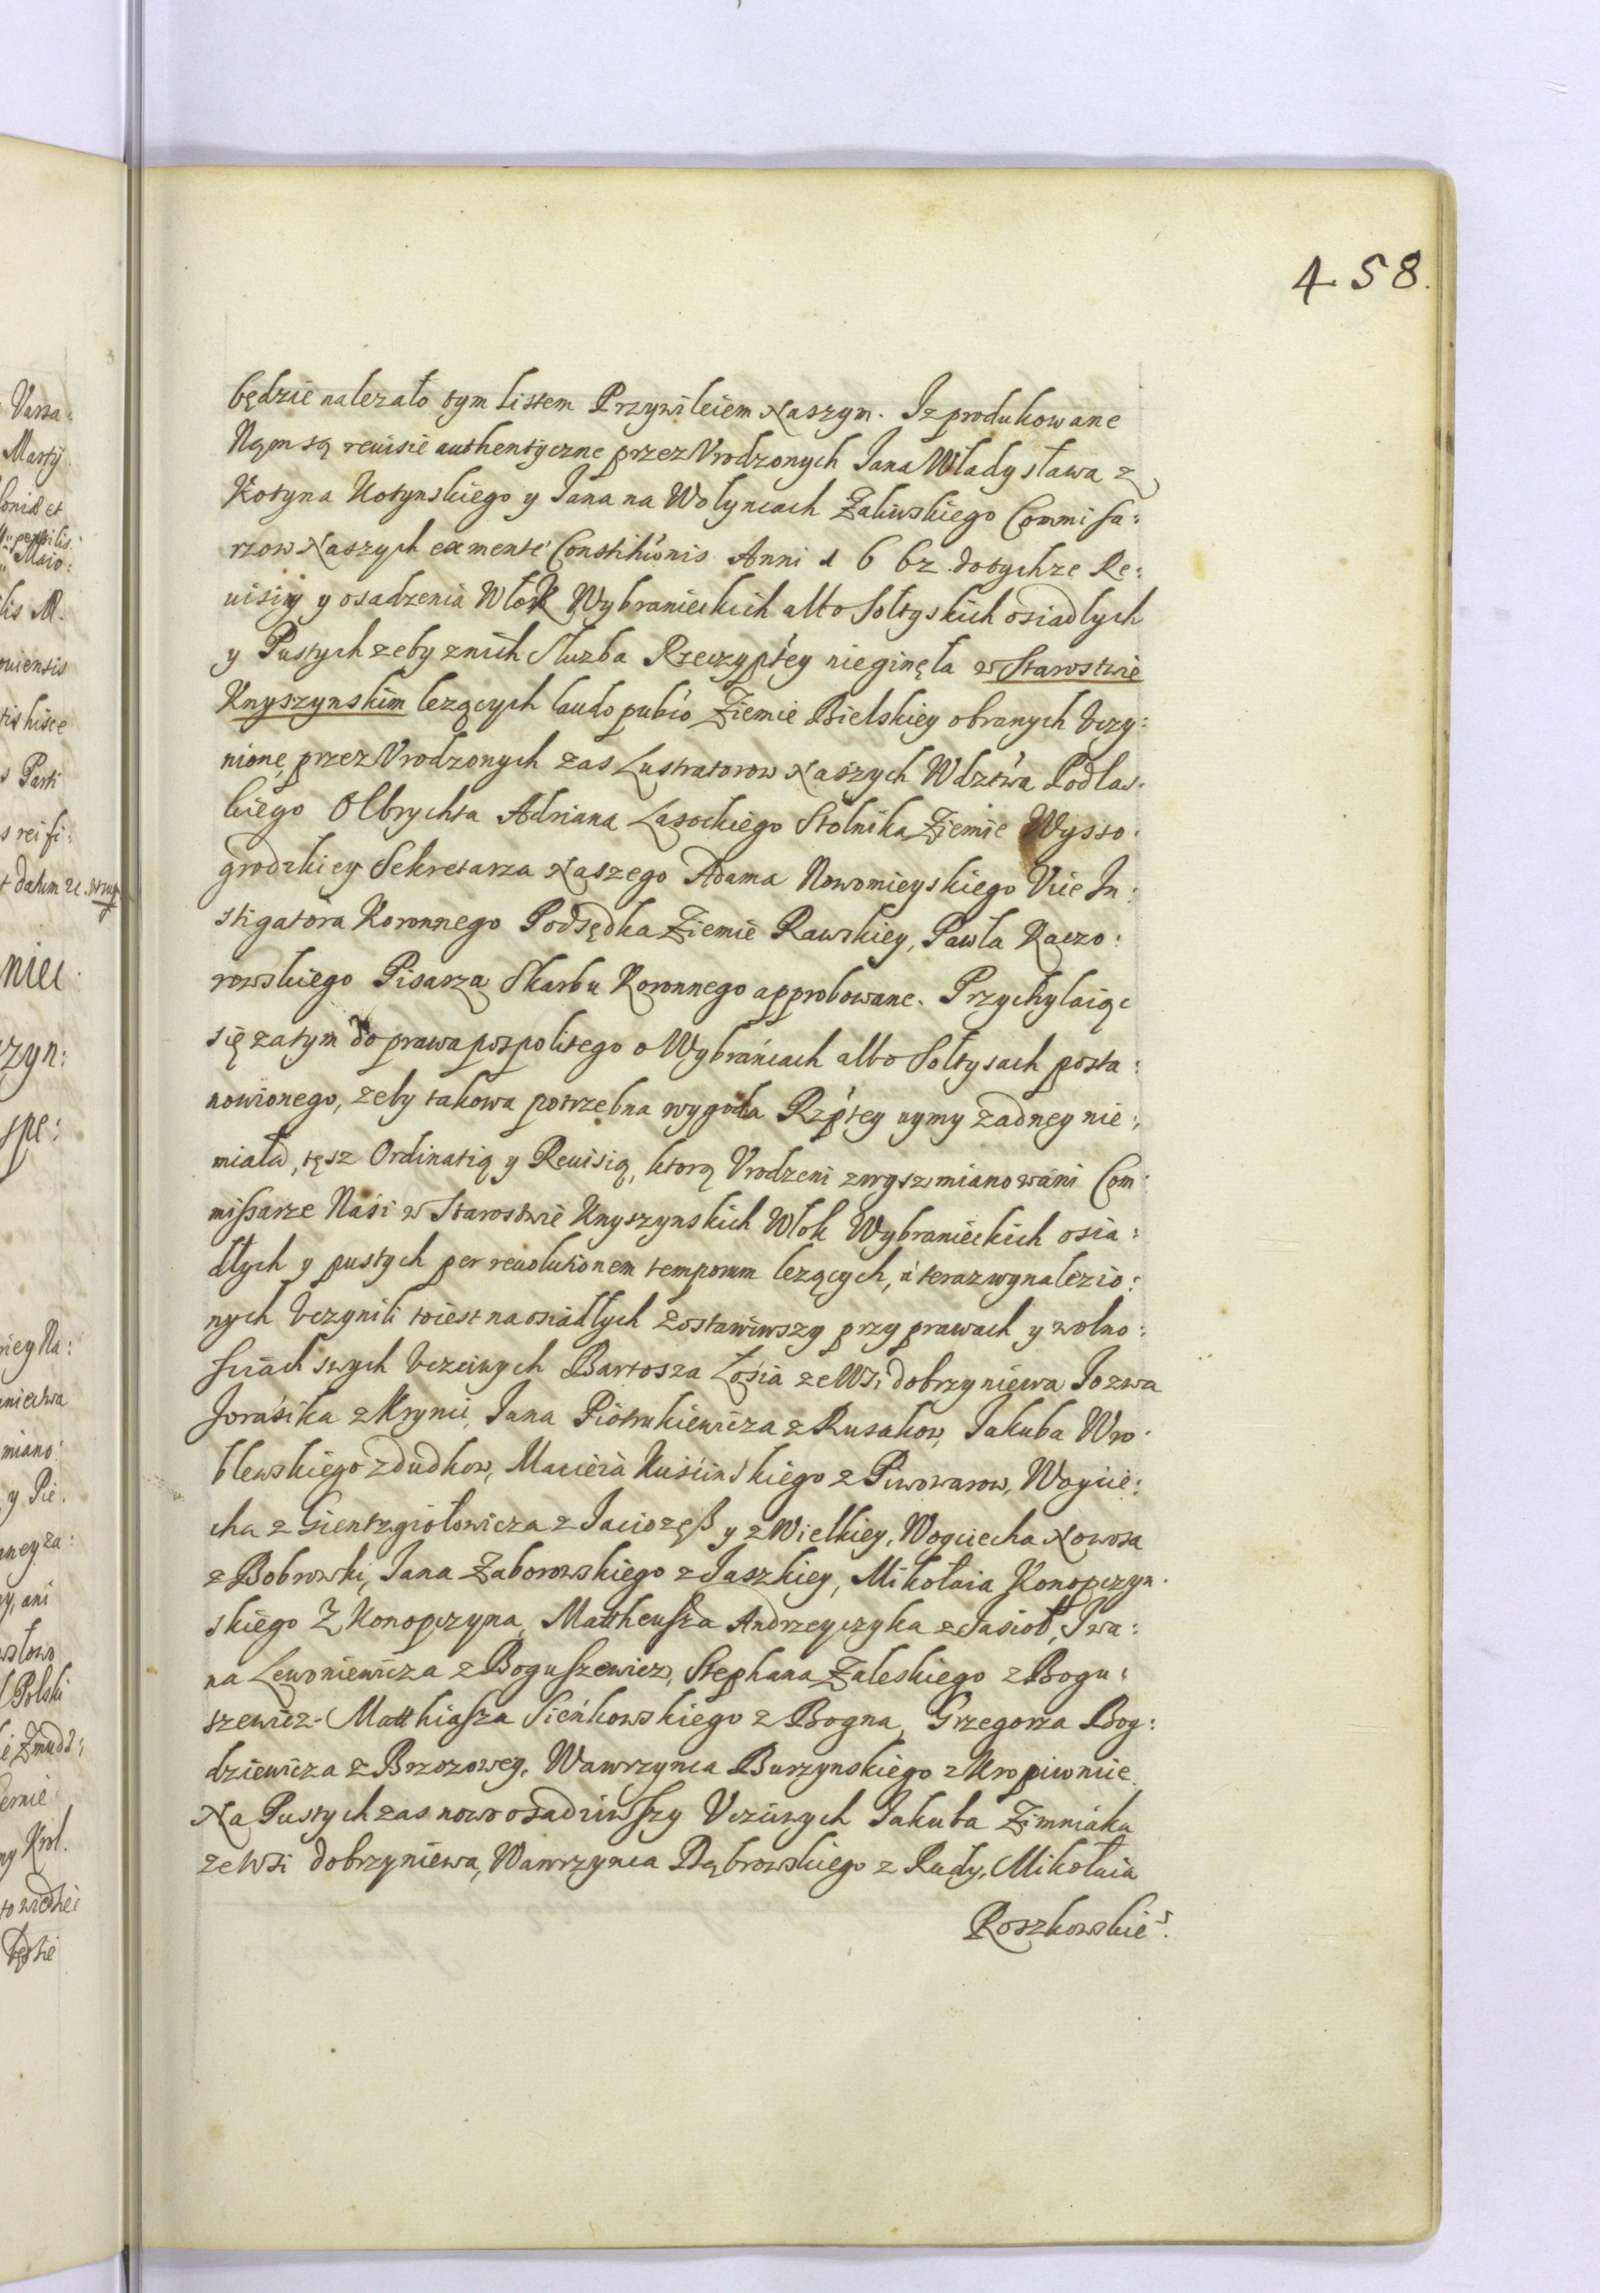 4.58.
będzie nalezało tym Listem Przywileiem Naszym. Iz produkowane
Nąm są reuisie authentyczne przez Vrodzonych Jana Władysława z
Kotyna Kotynskiego y Jana na Wołyncach Zaliwskiego Commissa:
rzow Naszych ex mente Constituōnis Anni 1662 dotychze Re:
uisiey y osadzenia Włok Wybranieckich albo Sołtyskich osiadłych
y Pustych zeby znich Słuzba Rzeczyptey nieginęła w Starostwie
Knyszynskim lezących laudo pubco Ziemie Bielskiey obranych Vczy:
nione, przez Vrodzonych zas Lustratorow Naszych Wdztwa Podlas:
kiego Olbrychta Adriana Lasockiego Stolnika Ziemie Wysso:
grodzkiey Sekretarza Naszego Adama Nowomieyskiego Vice In:
stigatora Koronnego Podsędka Ziemie Rawskiey, Pawła Kaczo:
rowskiego Pisarza Skarbu Koronnego approbowane. Przychylaiąc
się zatym do prawa pospolitego o Wybrańcach albo Sołtysach posta:
nowionego, zeby takowa potrzebna wygoda Rzptey uymy zadney nie:
miała, tęsz Ordinatią y Reuisią, ktorą Vrodzeni zwysz mianowani Com:
missarze Nasi w Starostwie Knyszynskich Włok Wybranieckich osia:
dłych y pustych per reuolutionem temporum lezących, a teraz wynalezio:
nych Vczynili toiest na osiadłych zostawiwszy przy prawach y wolno:
sciach swych Vczciwych Bartosza Łosia ze Wsi dobrzyniewa Jozwa
Jorasika z Krynic, Jana Piotrukiewicza z Rusakow, Jakuba Wro:
blewskiego z dudkow, Macieia Kuścinskiego z Piwowarow, Woycie:
cha z Gientzgiołowicza z Jaciozęß y z Wielkiey, Woyciecha Nowosa
z Bobrowki, Jana Zaborowskiego z Jaszkiey, Mikołaia Konopczyn:
skiego Z Konopczyna, Mattheusza Andrzeyczyka z Jasioł, Iwa:
na Lewoniewicza z Boguszewicz, Stephana Zaleskiego z Bogu:
szewicz. Matthiasza Sieńkowskiego z Bogna, Grzegorza Bog:
dziewicza z Brzozowey, Wawrzynca Burzynskiego z Kropiwnice.
Na Pustych zas nowo osadziwszy Vczciwych Jakuba Zimniaka
ze Wsi dobrzyniewa, Wawrzynca Dąbrowskiego z Rudy, Mikołaia
Roszkowskie